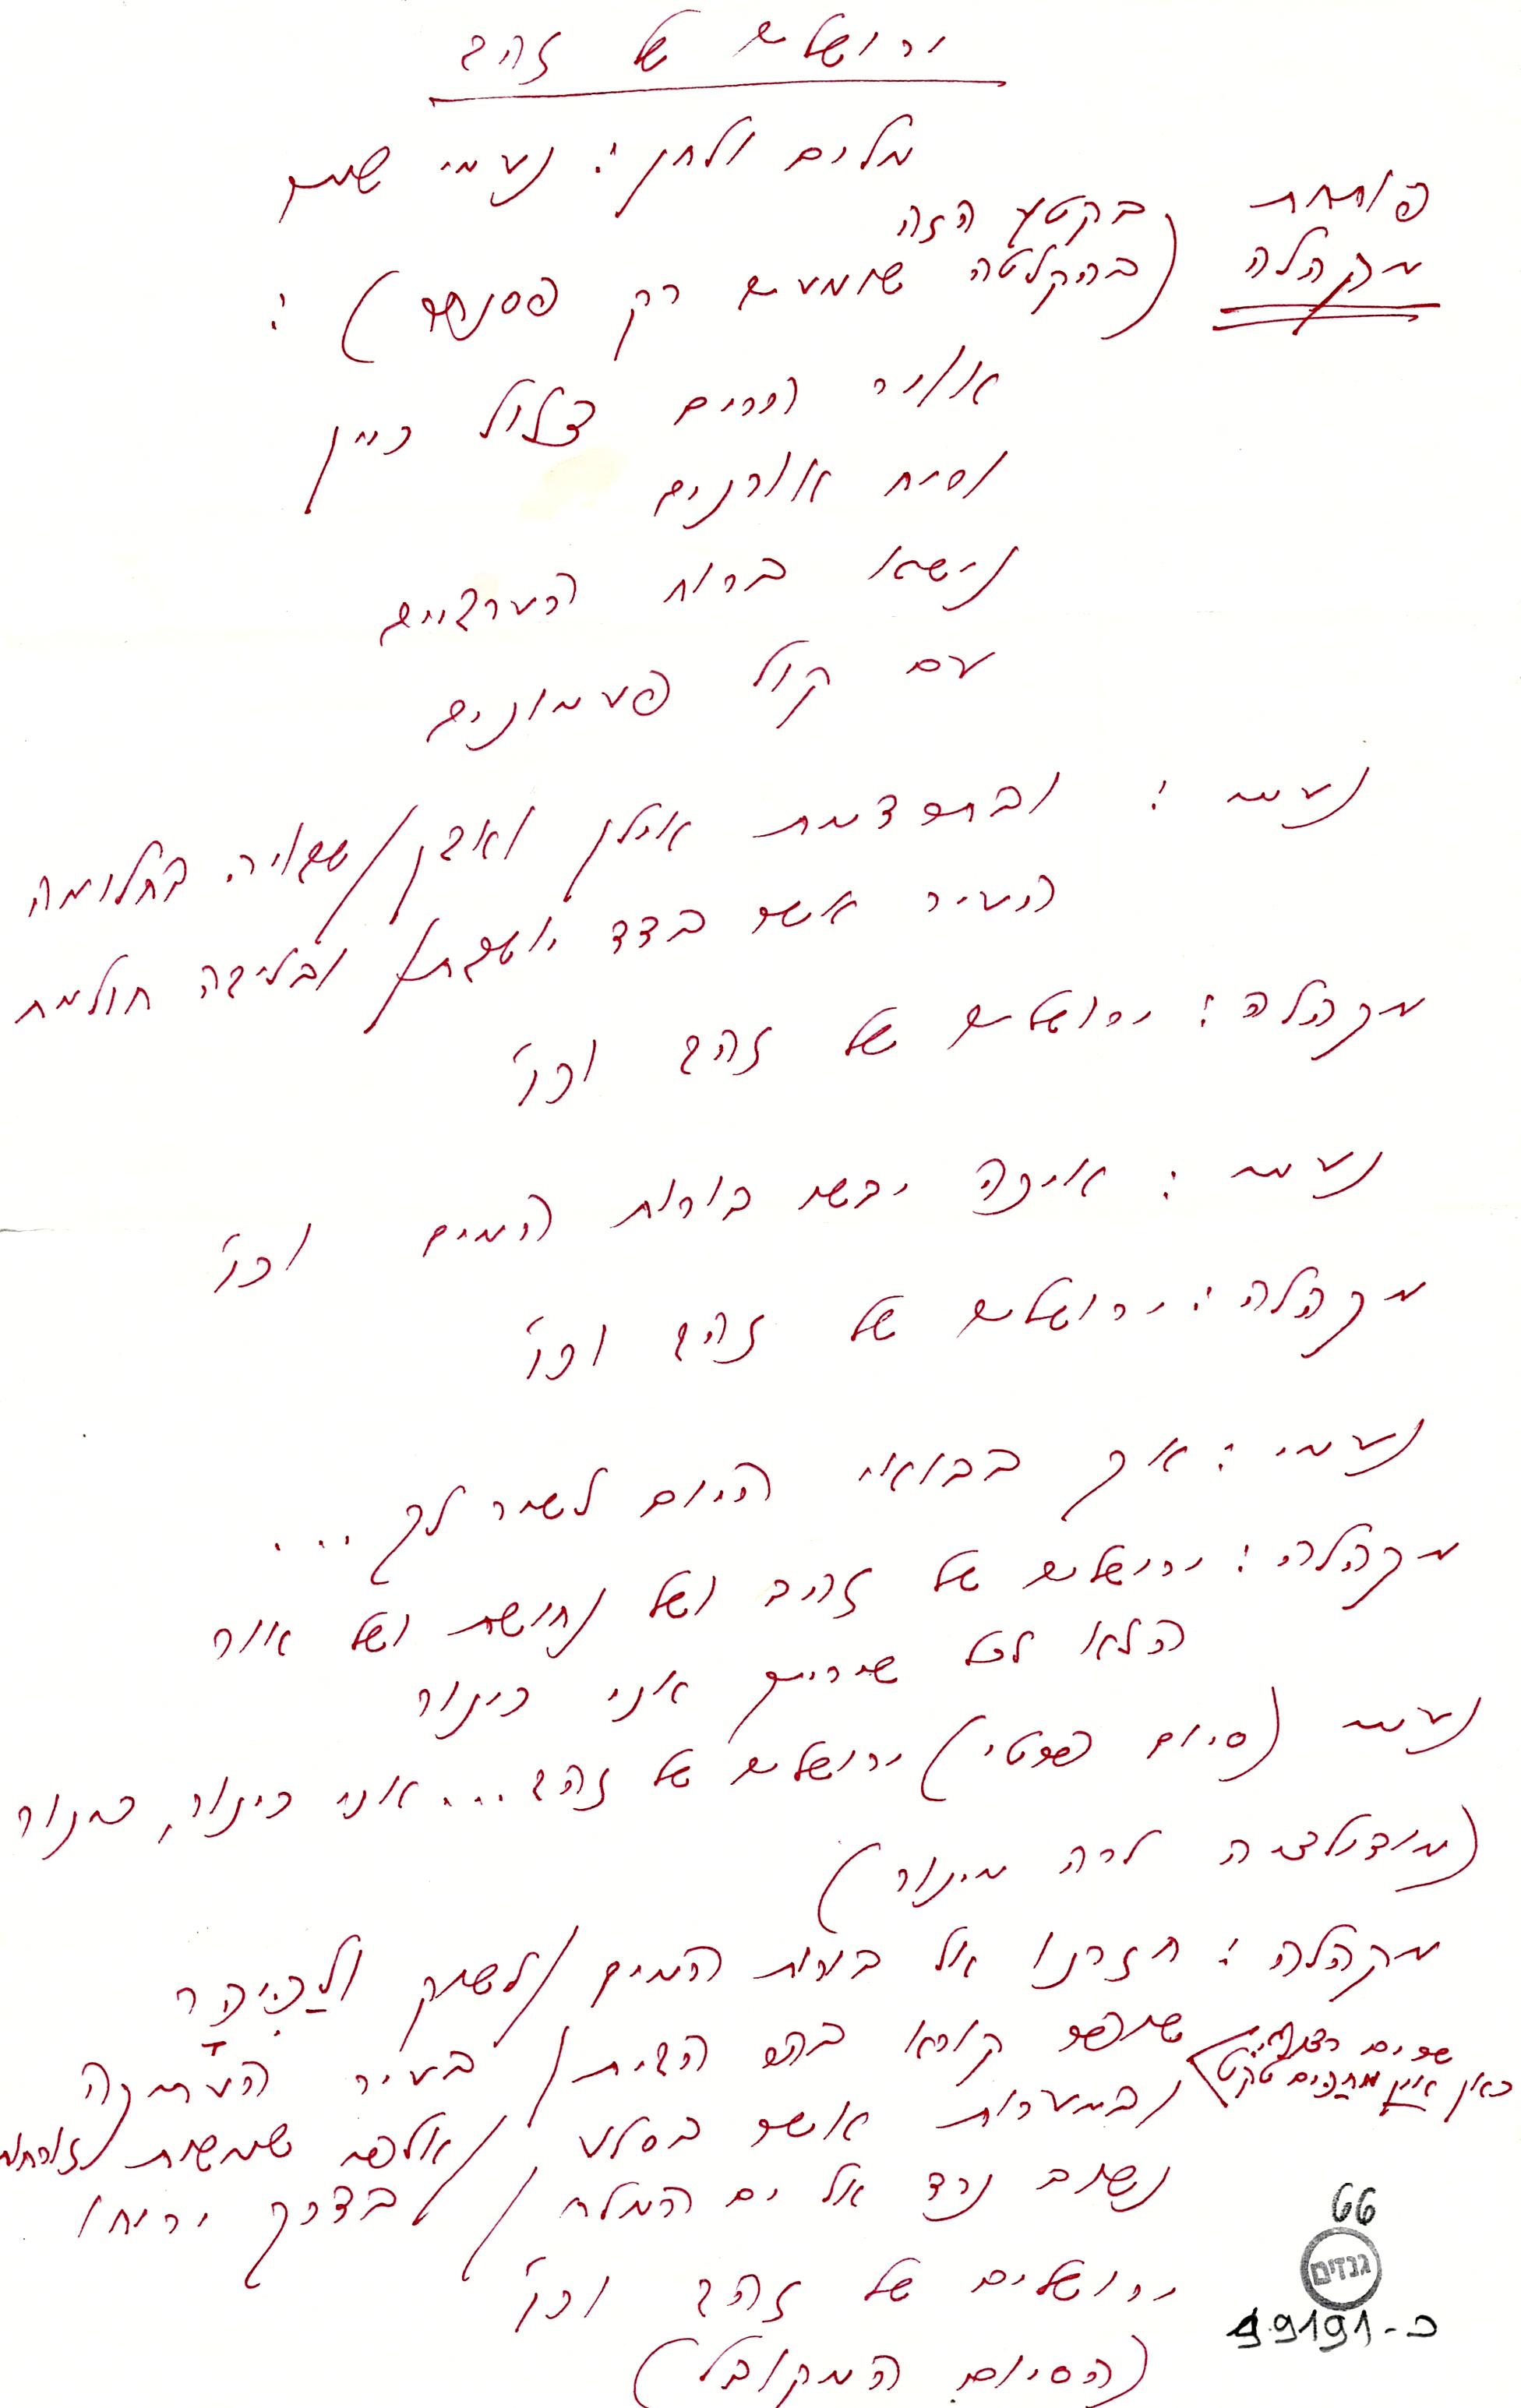 ירושלים של זהב
מלים ולחן: נעמי שמר
פותחת בקטע הזה
מקהלה (בהקלטה שומעים רק פסנתר):
אויר הרים צלול כיין
וריח אורנים
נישא ברוח הערביים
עם קול פעמונים
נעמי: ובתרדמת אילן ואבן / שבויה בחלומה
העיר אשר בדד יושבת / ובליבה חולמת
מקהלה: ירושלים של זהב וכו'
נעמי: איכה יבשו בורות המים וכו'
מקהלה: ירושלים של זהב וכו'
נעמי: אך בבואי היום לשיר לך ...
מקהלה: ירושלים של זהב ושל נחושת ושל אור
הלא לכל שירייך אני כינור
נעמי (סיום פרטי) ירושלים של זהב... אני כינור, כינור
(מודולציה לרה מינור)
מקהלה: חזרנו אל בורות המים / לשוק ולַכּיכּר
שופר קורא בהר הבית / בעיר העתיקה
כאן אין מחכים טקט
ובמערות אשר בסלע / אלפי שמשות זורחות
נשוב נרד אל ים המלח / בדרך יריחו
ירושלים של זהב וכו'
(הסיום המקובל)
66
גנזים
כ-99191